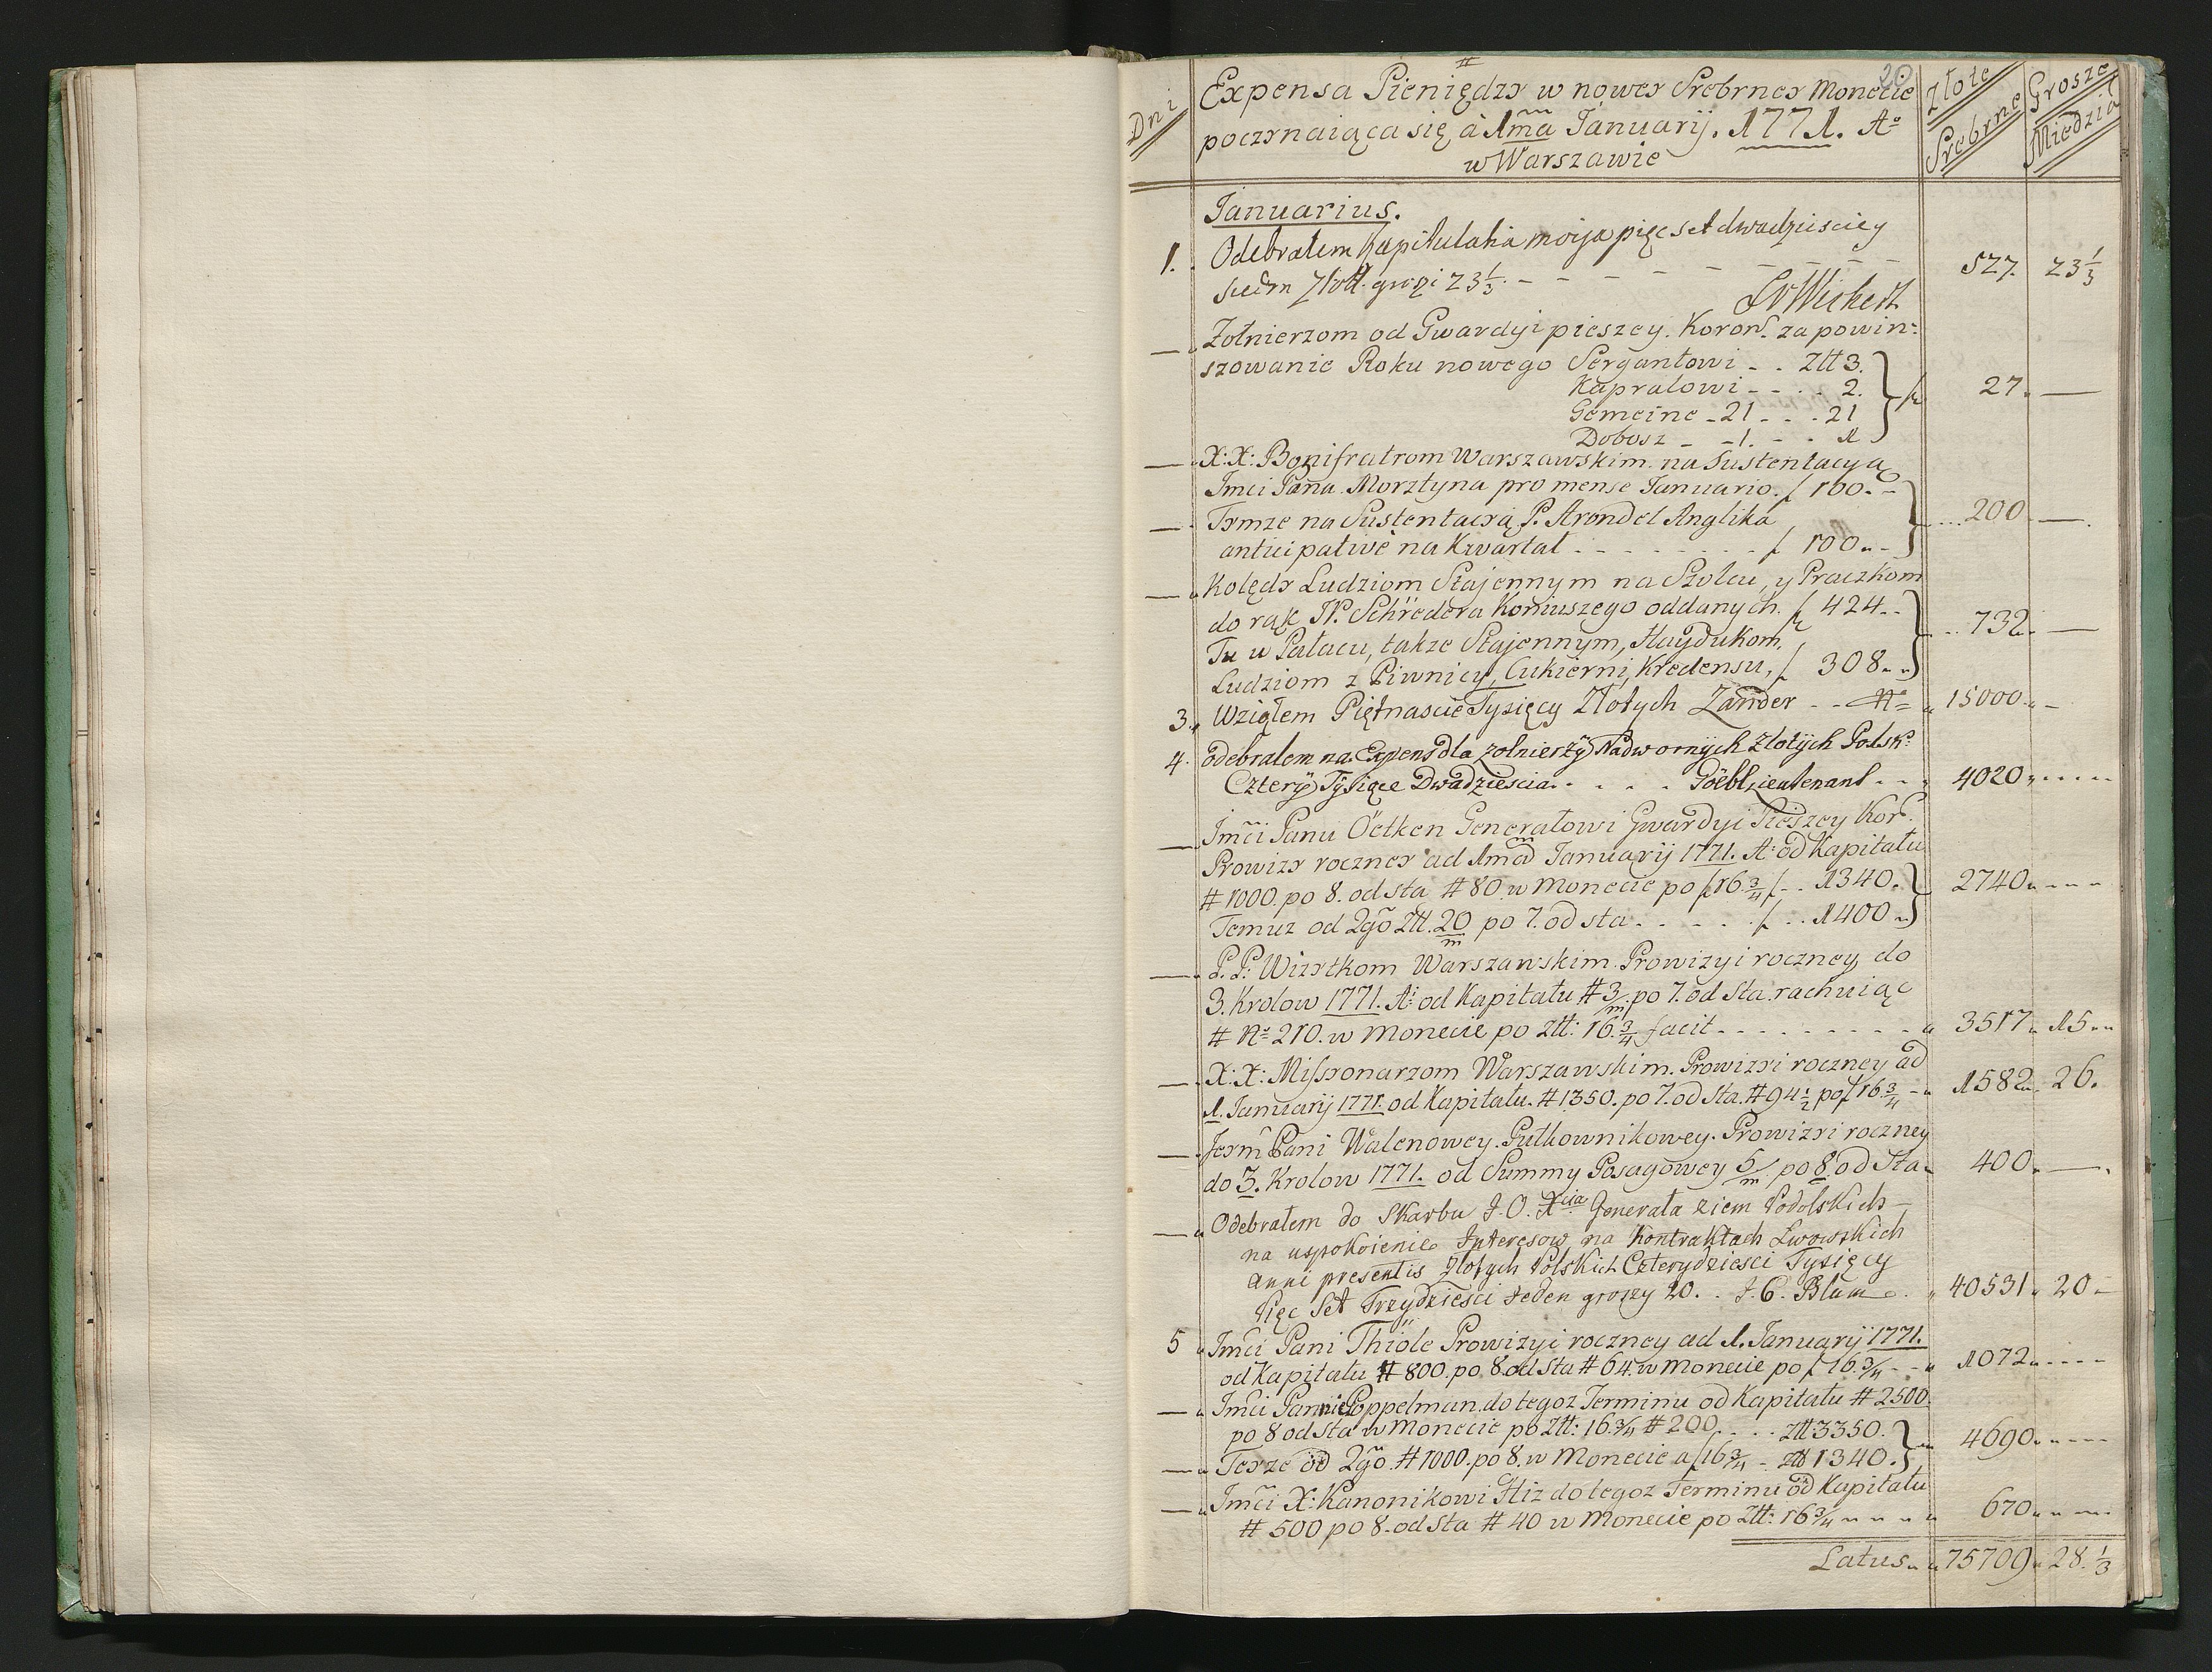 20
Dni
Expensa Pieniędzy w nowey Srebrney Monecie
Złote Srebrne
Grosze Miedzia
poczynaiąca się à 1ma Januarij. 1771. Ao
w Warszawie
Januarius.
1. Odebrałem Kapitulatia moija pięc set dwadziescie y
siedm Złott. grozi 23 1/3. - - - - - - - - 527. 23 1/3
Żołnierzom od Gwardyi pieszey. Koron. za powin=
szowanie Roku nowego Sergantowi - - Ztt 3.
Kapralowi - - - 2.
27. —
Gemeine - 21 - - - 21
Dobosz - - 1. - - 1
X: X: Bonifratrom Warszawskim na Sustentacyą
Imci Pana Morztyna pro mense Januario. f 100. -
Tymze na Sustentacyą P. Arondel Anglika
200 —
anticipativè na Kwartał - - - - - - f 100. -
Kolędy Ludziom Stajennym na Szolcu, y Praczkom
do rąk JP. Schrëdera Koniuszego oddanych. f 424. -
732. —
Tu w Pałacu, takze Stajennym, Haydukom,
Ludziom z Piwnicy, Cukierni, Kredensu, f 308. -
3. Wziąłem Piętnascie Tysięcy Złotych Zander - - 15000. -
4. Odebrałem na Expens dla zolnierzÿ Nadwornÿch Zlotÿch Polsk:
Czterÿ Tÿsiące Dwadziescia. . . . . Göebl, Lieutenant - - 4020 - - - -
Imci Panu Öetken Generałowi Gwardyi Pieszey Kor.
Prowizy roczney ad 1mam Januarij 1771. A: od Kapitału
# 1000. po 8. od sta # 80. w Monecie po f 16. 3/4 f - - 1340.
2740 - - - -
Temuz od 2go Ztt. 20/m po 7. od sta . . . . . f . . 1400
P. P: Wizytkom Warszawskim Prowizyi roczney do
3. Krolow 1771. A: od Kapitału # 3/m. po 7. od Sta rachuiąc
# No 210. w Monecie po Ztt: 16. 3/4 facit - - - - - - - 3517. 15 - -
X: X: Missyonarzom Warszawskim. Prowizyi roczney ad
1. Januarij 1771. od Kapitału. # 1350. po 7. od Sta. # 94 1/2 po f 16. 3/4 - 1582. 26.
Jeym Pani Walenowey. Pułkownikowey. Prowizyi roczney
do 3. Krolow 1771. od Summy Posagowey 5/m po 8. od Sta 400. —
Odebrałem do Skarbu J. O. Xcia Generała ziem Podolskich —
na uspokoienie Interesow na Kontraktach Lwowskich
anni presentis Złotych Polskich Czterydziesci Tysięcy
Pięc Set Trzydziesci Jeden groszy 20. . J. C. Blum. 40531. 20 -
5 Imci Pani Thiöle Prowizyi roczney ad 1. Januarij 1771.
od Kapitału # 800. po 8. od Sta # 64. w Monecie po f 16. 3/4 - - 1072 - - - -
Imci Pannie Poppelman. do tegoz Terminu od Kapitału # 2500.
po 8 od Sta w Monecie po Ztt: 16. 3/4 # 200. . . . Ztt 3350.
4690 - - - -
Teyze od 2go. # 1000. po 8. w Monecie a f 16 3/4 - Ztt 1340.
Imci X: Kanonikowi Hiz do tegoz Terminu od Kapitału
# 500 po 8. od Sta # 40 w Monecie po Ztt: 16 3/4 - - - - 670 - - - -
Latus. 75709. 28. 1/3